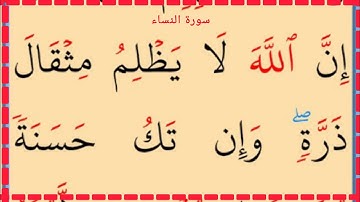 سورة النساء
إِنَّ ٱللَّهَ لَا يَظْلِمُ مِثْقَالَ
ذَرَّةٍۖ وَإِن تَكُ حَسَنَةً